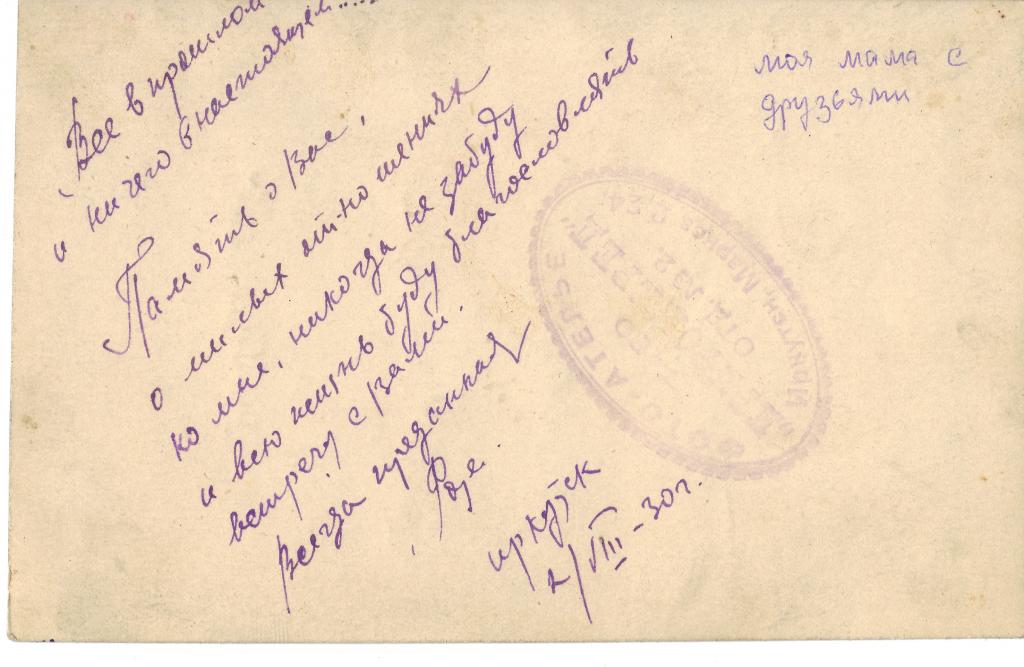 Все в прошлом
и ничего в настоящем....
Память о Вас,
о милых от-ношениях
ко мне, никогда не забуду
и всю жизнь буду благословлять
встречу с Вами.
Всегда преданная
Иркутск
2/VIII-30г.
моя мама с
друзьями
АТЕЛЬЕ
Иркутск